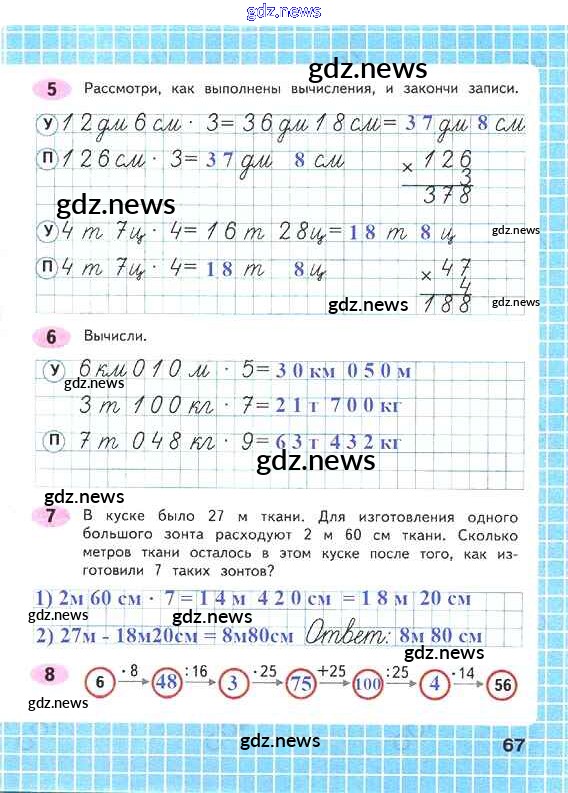 gdz.news
gdz.news
5 Рассмотри, как выполнены вычисления, и закончи записи.
У 12 дм 6 см · 3 = 36 дм 18 см = 37 дм 8 см
П 126 см · 3 = 37 дм 8 см × 126
3
378
gdz.news
У 4 т 7 ц · 4 = 16 т 28 ц = 18 т 8 ц gdz.news
П 4 т 7 ц · 4 = 18 т 8 ц × 47
4
188
gdz.news
6 Вычисли.
У 6 км 010 м · 5 = 30 км 050 м
gdz.news
3 т 100 кг · 7 = 21 т 700 кг
П 7 т 048 кг · 9 = 63 т 432 кг
gdz.news
gdz.news
7 В куске было 27 м ткани. Для изготовления одного
большого зонта расходуют 2 м 60 см ткани. Сколько
метров ткани осталось в этом куске после того, как из-
готовили 7 таких зонтов?
gdz.news
1) 2м 60 см · 7 = 14 м 420 см = 18 м 20 см
gdz.news
2) 27м - 18м20см = 8м80см Ответ: 8м 80 см
gdz.news
8 6 · 8 48 : 16 3 · 25 75 +25 100 : 25 4 · 14 56
gdz.news
gdz.news
67